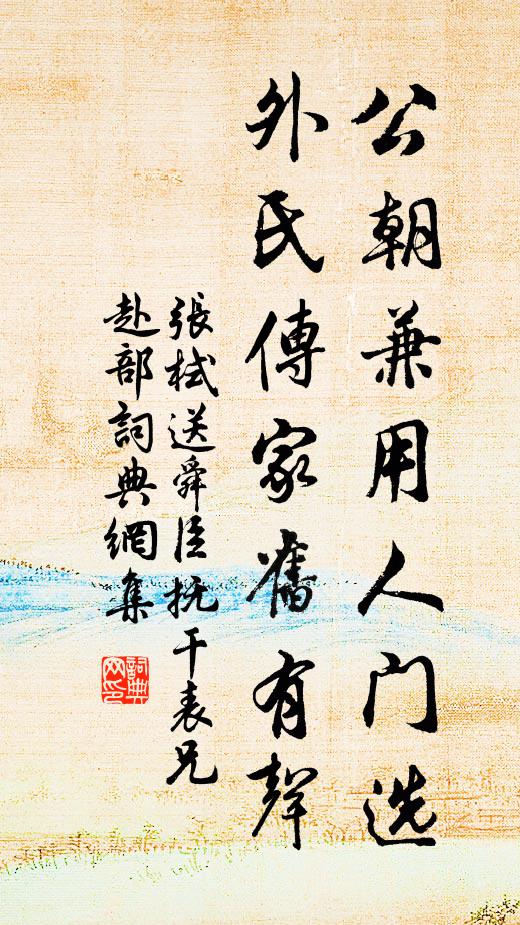 公朝兼用人门选
外氏傳家舊有聲
張栻送舜臣抚干表兄
赴部詞典網集
詞典
网印